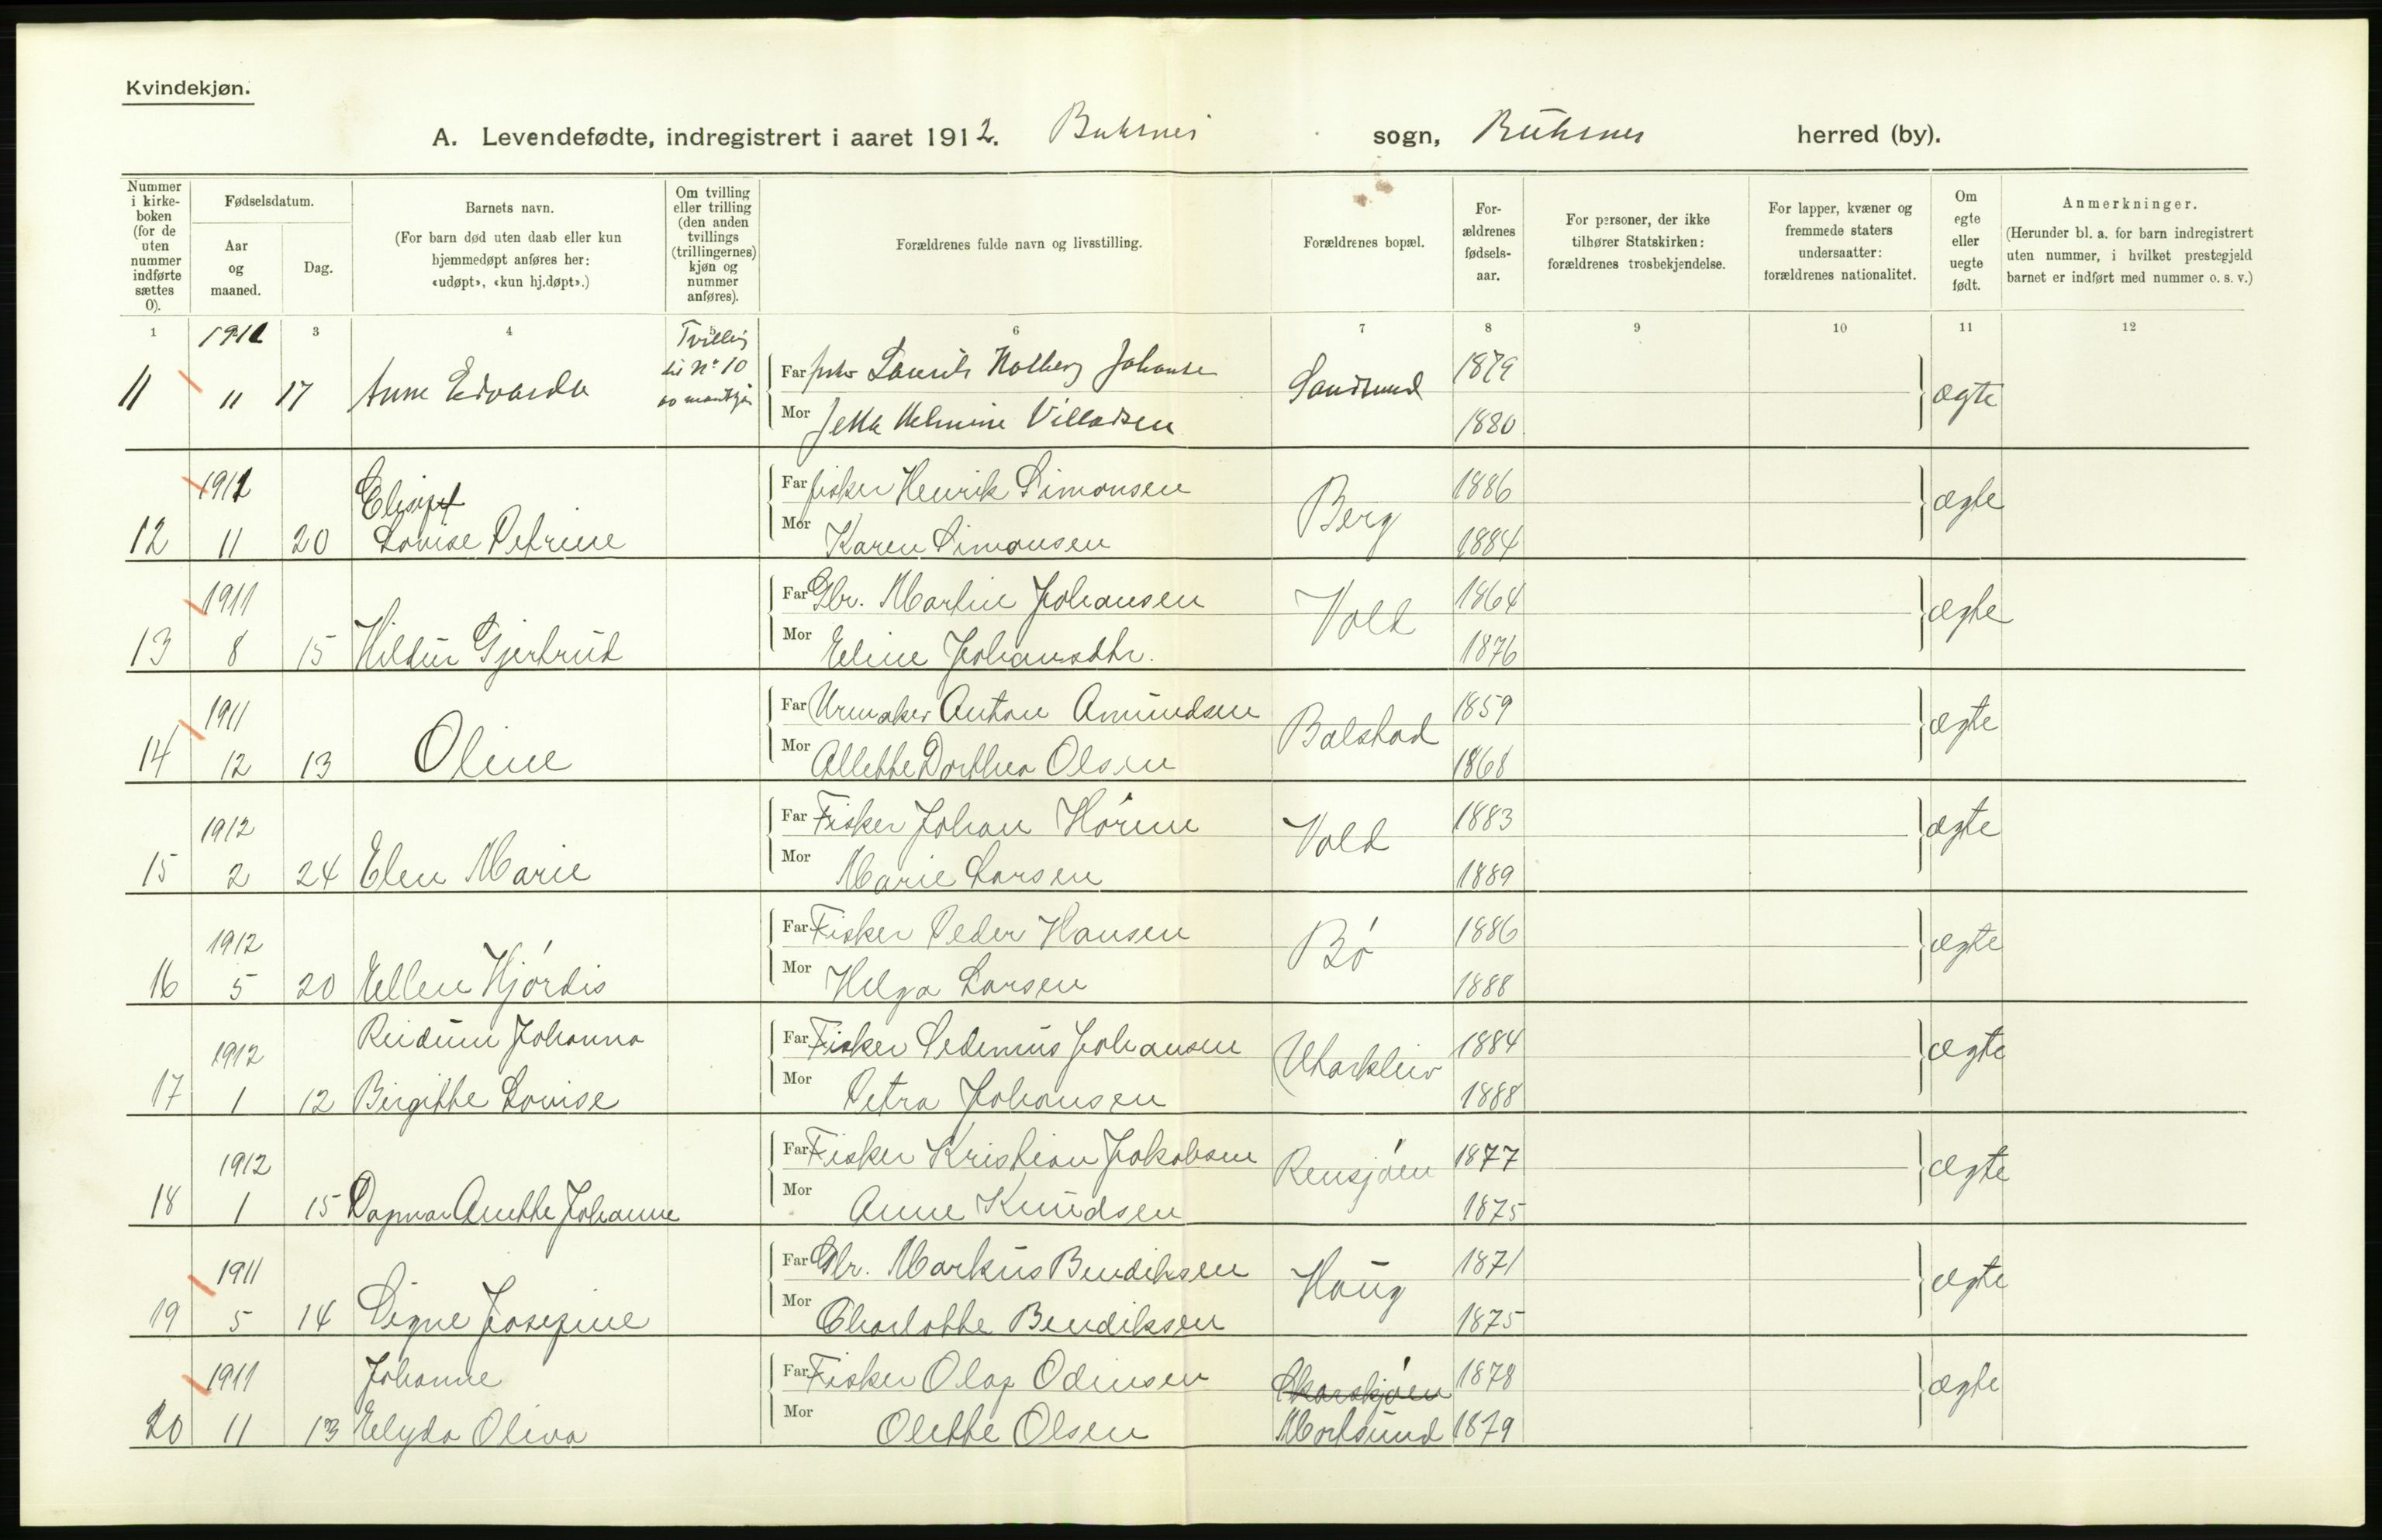 Kvindekjøn.
A. Levendefødte, indregistrert i aaret 1912. Buksnes sogn, Buksnes herred (by).
Nummer i kirkeboken (for de uten nummer indførte sættes 0).
Fødselsdatum.
Aar og maaned.
Dag.
Barnets navn.
(For barn død uten daab eller kun hjemmedøpt anføres her: «udøpt», «kun hj.døpt».)
Om tvilling eller trilling (den anden tvillings (trillingernes) kjøn og nummer anføres).
Forældrenes fulde navn og livsstilling.
Forældrenes bopæl.
Forældrenes fødselsaar.
For personer, der ikke tilhører Statskirken: forældrenes trosbekjendelse.
For lapper, kvæner og fremmede staters undersaatter: forældrenes nationalitet.
Om egte eller uegte født.
Anmerkninger.
(Herunder bl. a. for barn indregistrert uten nummer, i hvilket prestegjeld barnet er indført med nummer o. s. v.)
1 3 4 5 6 7 8 9 10 11 12
1911 Tvilling
til No 10
11 11 17 Anne Edvarda Far Laurits Holberg Johansen Sandsund 1879 ægte
Mor Helmine Villadsen 1880
1911 Far fisker Henrik Simonsen Berg 1886 ægte
12 11 20 Louise Petrine Mor Karen Simonsen 1884
1911 Far Gbr. Martin Johansen Vold 1864 ægte
13 8 15 Hildur Gjertrud Mor Eline Johansdtr. 1876
1911 Far Urmaker Anton Amundsen Balstad 1859 ægte
14 12 13 Oline Mor Allette Dorthea Olsen 1868
1912 Far Fisker Johan Vold 1883 ægte
15 2 24 Elen Marie Mor Marie Larsen 1889
1912 Far Fisker Peder Hansen Bø 1886 ægte
16 5 20 Ellen Hjørdis Mor Helga Larsen 1888
1912 Reidun Johanna Far Fisker Johansen Utakleiv 1884 ægte
17 1 12 Birgitte Louise Mor Petra Johansen 1888
1912 Far Fisker Kristian Jakobsen Rensjøen 1877 ægte
18 1 15 Dagmar Anette Johanne Mor Anne Knudsen 1875
1911 Far Gbr. Markus Bendiksen Haug 1871 ægte
19 5 14 Signe Josefine Mor Charlotte Bendiksen 1875
1911 Johanne Far Fisker Olaf Odinsen 1878 ægte
20 11 13 Elyda Oliva Mor Olette Olsen Mortsund 1879